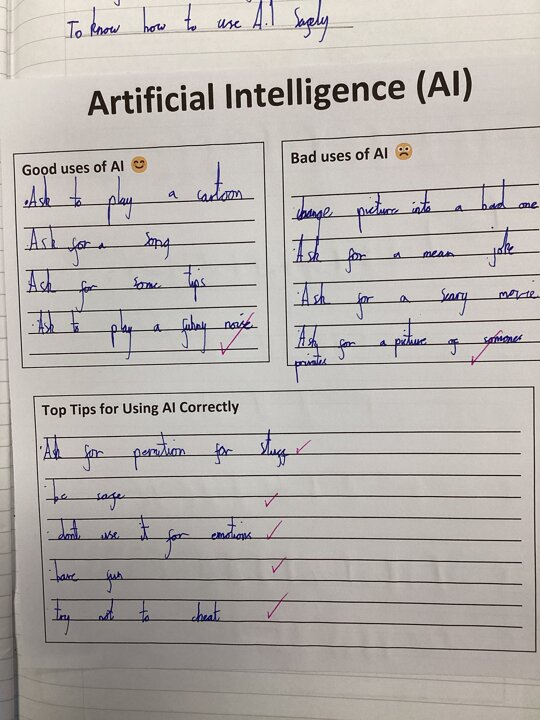 To know how to use A.I safely
Artificial Intelligence (AI)
Good uses of AI 😊
.Ask to play a cartoon
Ask for a song
Ask for some tips
.Ask to play a funny noise
Bad uses of AI ☹️
change picture into a bad one
.Ask for a mean joke
.Ask for a scary movie
.Ask for a picture of someones
privates
Top Tips for Using AI Correctly
.Ask for for stuff
.be safe
.dont use it for emotions
.have fun
.try not to cheat